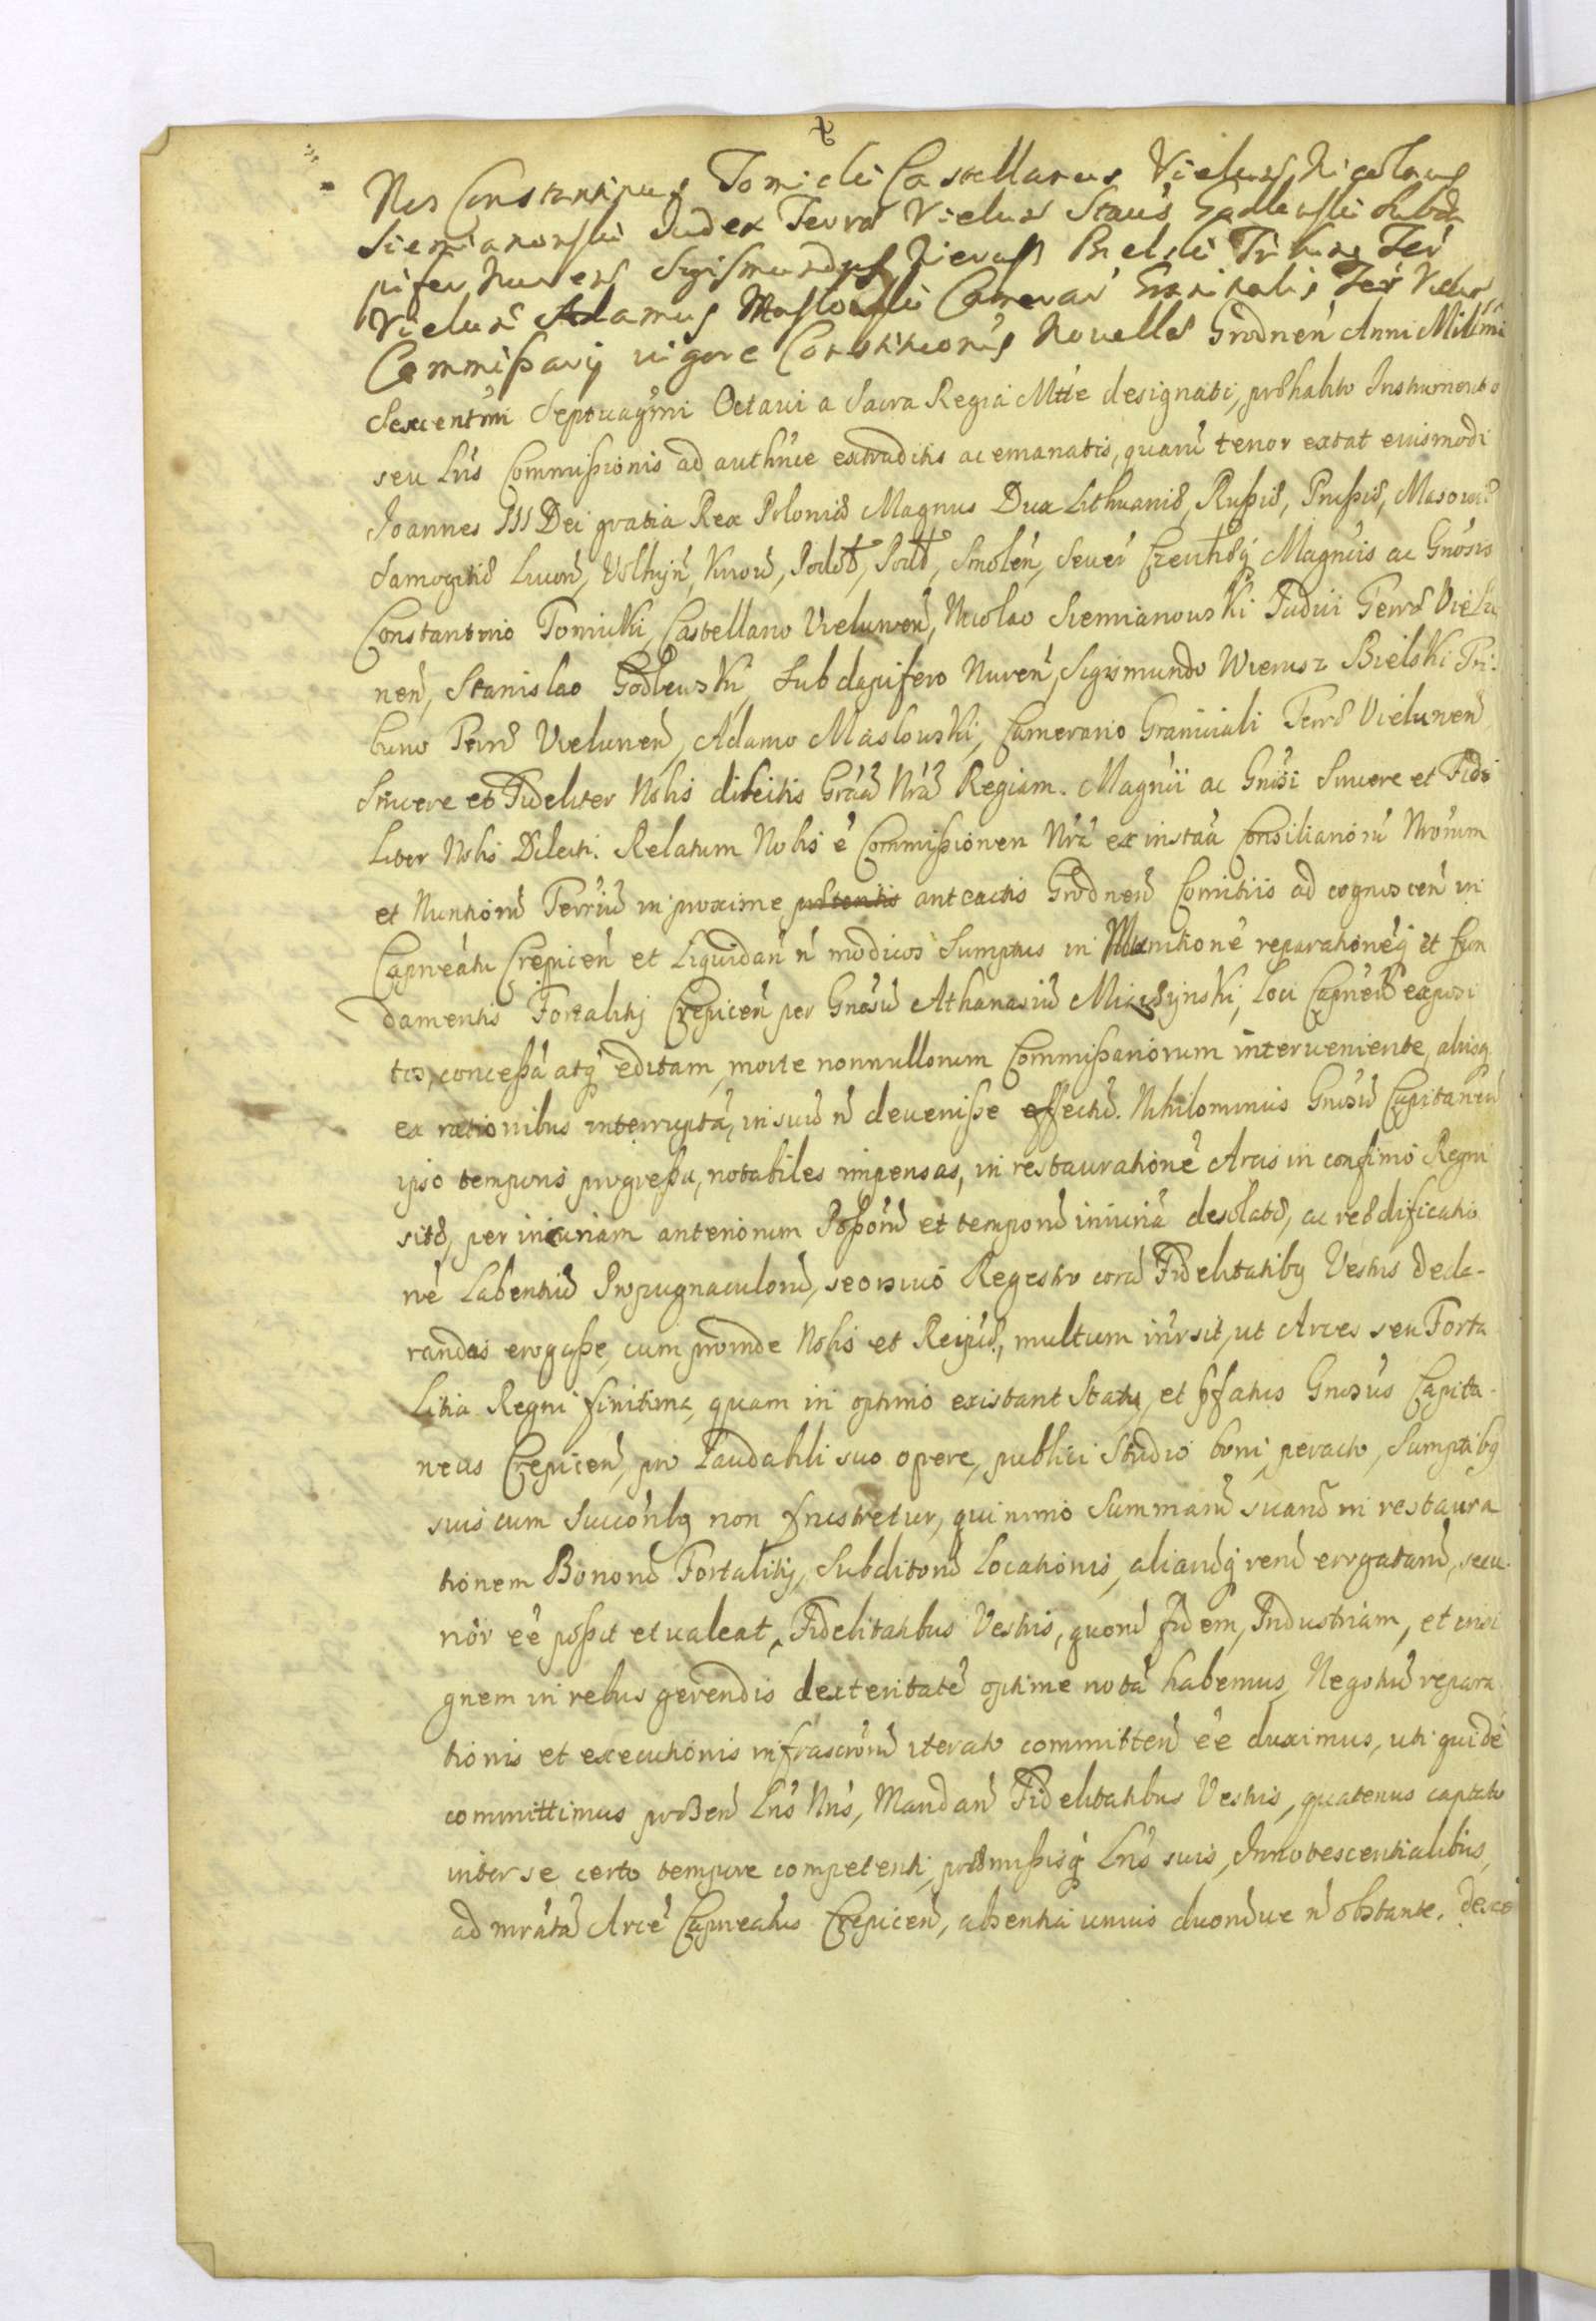 Nos Constantinus Tomicki Castellanus Vielun Nicolaus
Siemianowski Judex Terræ Vielun Staus Godlewski Subda
pifer Nuren Sigismundus Wierusz Bielski Tribuns Ter
Vieluń Adamus Masłowski Camerar Granicalis Ter Vielun
Commißarij vigore Constitionis Nouellæ Grodnen Anni Millmi
Sexcentmi Septuagmi Octaui a Sacra Regia Mtte designati, præhabito Instrumento
seu Lris Commißionis ad authnce extraditis ac emanatis, quarū tenor extat euismodi
Joannes III Dei gratia Rex Poloniæ Magnus Dux Lithuaniæ, Rußiæ, Prußiæ, Masouiæ
Samogitiæ Liuon, Volhyn, Kiiow, Podol, Podl, Smolen, Seuer Czerniechq Magncis ac Gnosis
Constantino Tomicki, Castellano Vielunen, Nicolao Siemianowski Judici Terræ Vielu
nen, Stanislao Godlewski, Subdapifero Nuren, Sigismundo Wierusz Bielski Tri-
buno Terræ Vielunen, Adamo Masłowski, Camerario Graniciali Terræ Vielunen
Sincere et Fideliter Nobis dilectis Gratiā Nrā Regiam. Magncii ac Gnosi Sincere et Fide
liter Nobis Dilecti. Relatum Nobis ē Commißionem Nrā ex instaā Consiliariorū Nrorum
et Nuntiorū Terrriū in proxime anteactis Grodnen Comitiis ad cognoscen in
Capneatu Crepicen et Liquidan n modicos Sumptus in Munitionē reparationēq et fun
damentis Fortalitij Crepicen per Gnosū Athanasiū Miączynski, Loci Capneū exposi
tos, conceßā atq editam, morte nonnullorum Commißariorum interueniente, aliisq
ex rationibus interruptā, in suū n deuenisse effectū. Nihilominus Gnosū Capitaneū
ipso temporis progreßu, notabiles impensas, in restaurationē Arcis in confinio Regni
sitæ, per incuriam anteriorum Poßorū et temporū iniuriā desolatæ, ac reædificatio
nē Labentiū Propugnaculorū, seorsiuo Regestro corā Fidelitatibq Vestris decla-
randas erogaße, cum proinde Nobis et Reipcæ, multum intrsit, ut Arces seu Forta
Litia Regni finitima, quam in optimo existant Statu, et pfatus Gnosus Capita-
neus Crepicen, pro Laudabili suo opere, publici Studio boni, peracto, Sumptibq
suis cum Succoribq non frustretur, quinimo Summarū suarū in restaura
tionem Bonorū Fortalitij, Subditorū Locationis, aliarūq rerū errogatarū, secu-
rior eē poßit et ualeat, Fidelitatibus Vestris, quorū fidem, Industriam, et insi
gnem in rebus gerendis dexteritatē optime notā habemus, Negotiū repara
tionis et executionis infrascriptū iterato committen eē duximus, uti quidē
committimus præsen Lris Nris, Mandan Fidelitatibus Vestris, quatenus captato
inter se certo tempore competenti, præmißisq Lris suis, Innotescentialibus,
ad mratā Arcē Capneatus Crepicen, absentia unius duorūue n obstante,